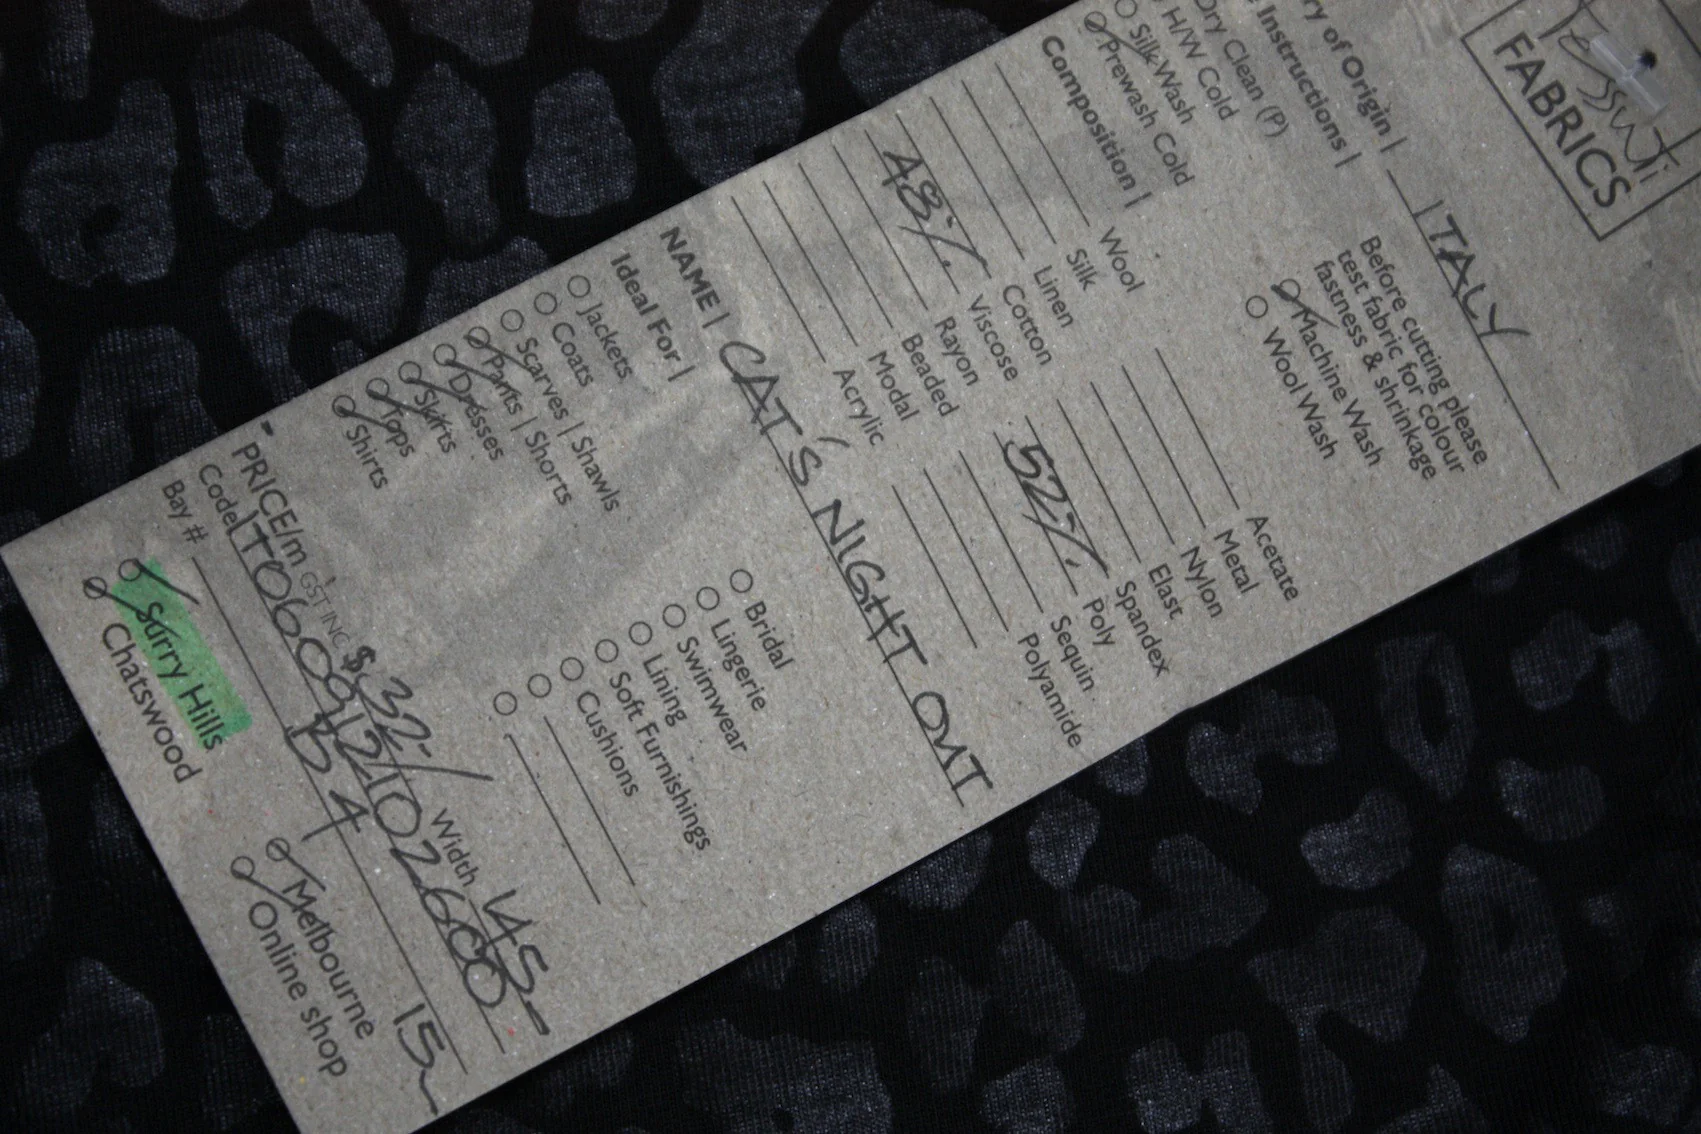 Tessuti
FABRICS
ry of Origin | ITALY
Instructions |
Dry Clean (P)
H/W Cold
Silk Wash
Prewash Cold
Before cutting please
test fabric for colour
fastness & shrinkage
Machine Wash
Wool Wash
Composition |
Wool Acetate
Silk Metal
Linen Nylon
Cotton Elast
48% Viscose Spandex
Rayon 52% Poly
Beaded Sequin
Modal Polyamide
Acrylic
NAME | CAT'S NIGHT OUT
Ideal For |
Jackets Bridal
Coats Lingerie
Scarves | Shawls Swimwear
Pants | Shorts Lining
Dresses Soft Furnishings
Skirts Cushions
Tops
Shirts
PRICE/m GST INC $32-/ Width 145-
Code| TO60912102600
Bay # D4 15m
Surry Hills Melbourne
Chatswood Online shop